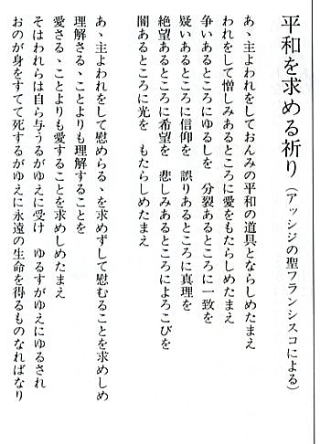 平和を求める祈り（アッシジの聖フランシスコによる）
あゝ主よわれをしておんみの平和の道具とならしめたまえ
われをして憎しみあるところに愛をもたらしめたまえ
争いあるところにゆるしを　分裂あるところに一致を
疑いあるところに信仰を　誤りあるところに真理を
絶望あるところに希望を　悲しみあるところによろこびを
闇あるところに光を　もたらしめたまえ
あゝ主よわれをして慰めらるゝを求めずして慰むることを求めしめ
理解さるゝことよりも理解することを
愛さるゝことよりも愛することを求めしめたまえ
そはわれらは自ら与うるがゆえに受け　ゆるすがゆえにゆるされ
おのが身をすてて死するがゆえに永遠の生命を得るものなればなり